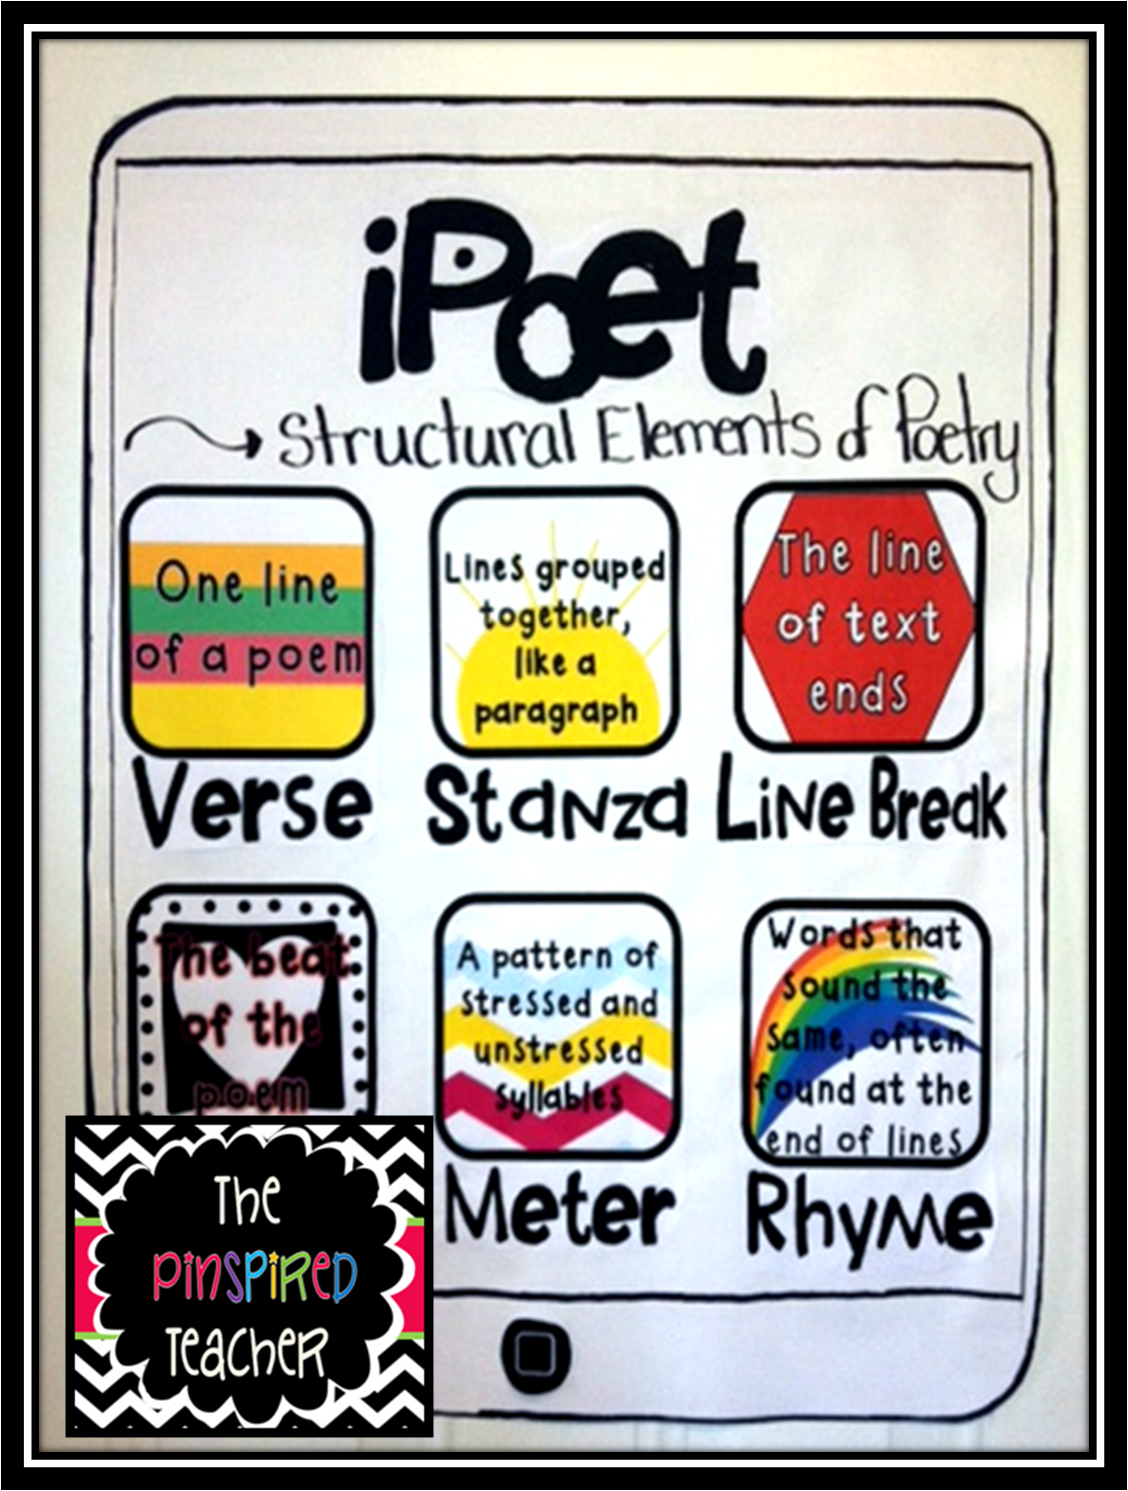 iPoet
Structural Elements of Poetry
One line
of a poem
Verse
Lines grouped
together,
like a
paragraph
Stanza
The line
of text
ends
Line Break
The beat
of the
poem
A pattern of
stressed and
unstressed
syllables
Meter
Words that
sound the
same, often
found at the
end of lines
Rhyme
The
Pinspired
Teacher